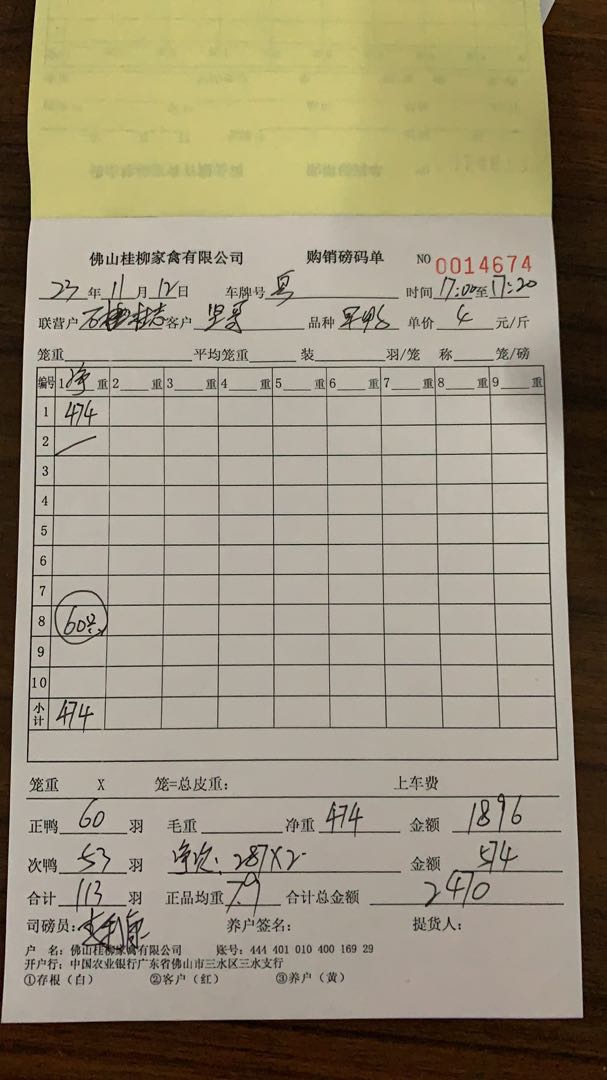 佛山桂柳家禽有限公司 购销磅码单 NO 0014674
23年11月12日 车牌号 时间17:00至17:20
联营户 客户 坚哥 品种 单价 4 元/斤
笼重 平均笼重 装 羽/笼 称 笼/磅
编号 1净重 2 重 3 重 4 重 5 重 6 重 7 重 8 重 9 重
1 474
2
3
4
5
6
7
8 60只
9
10
小计 474
笼重 X 笼=总皮重: 上车费
正鸭 60 羽 毛重 净重 474 金额 1896
次鸭 53 羽 净次: 287×2 金额 574
合计 113 羽 正品均重 7.9 合计总金额 2470
司磅员: 养户签名: 提货人:
户 名: 佛山桂柳家禽有限公司 账号: 444 401 010 400 169 29
开户行: 中国农业银行广东省佛山市三水区三水支行
①存根（白） ②客户（红） ③养户（黄）